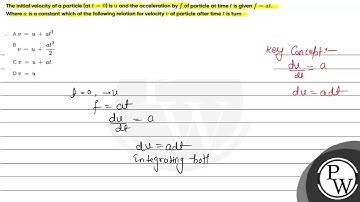 The initial velocity of a particle (at t = 0) is u and the acceleration by f of particle at time t is given f = at.
Where a is a constant which of the following relation for velocity v of particle after time t is turn
A v = u + at²
B v = u + at²/2
C v = u + at
D v = u
Key Concept:-
du/dt = a
du = adt
t=0, → u
f = at
du/dt = a
du = adt
Integrating both
PW